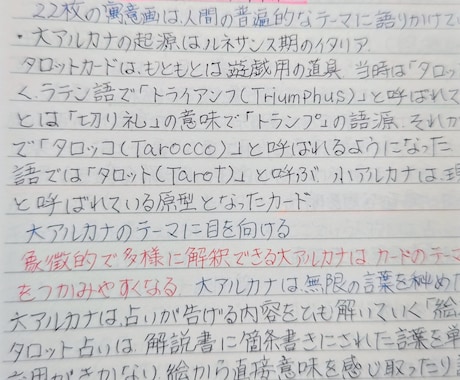 22枚の寓意画は、人間の普遍的なテーマに語りかけてい
・大アルカナの起源はルネサンス期のイタリア.
タロットカードは、もともとは遊戯用の道具. 当時は「タロッ
く、ラテン語で「トライアンフ(Triumphus)」と呼ばれて
とは「切り札」の意味で「トランプ」の語源. それが
で「タロッコ(Tarocco)」と呼ばれるようになった
語では「タロット(Tarot)」と呼ぶ. 小アルカナは、現
と呼ばれている原型となったカード.
大アルカナのテーマに目を向ける
象徴的で多様に解釈できる大アルカナは カードのテー
をつかみやすくなる 大アルカナは、無限の言葉を秘めた
大アルカナは、占いが告げる内容をとも解いていく「絵
タロット占いは、解説書に箇条書きにされた言葉を単
応用がきかない. 絵から直接意味を感じ取ったり